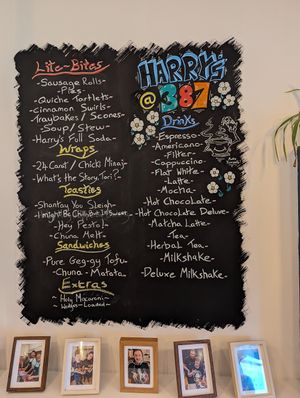 Lite-Bites
-Sausage Rolls-
-Pies-
-Quiche Tartlets-
-Cinnamon Swirls-
-Traybakes / Scones-
-Soup / Stew-
-Harry's Full Soda-
Wraps
-24 Carat / Chicki Minaj-
-What's the Story, Tori?-
Toasties
-Shantay You Sleigh-
-I Might Be Chilli But I'm Sweet-
-Hey Pesto!-
-Chuna Melt-
Sandwiches
-Pure Geg-gy Tofu-
-Chuna-Matata-
Extras
~Holy Macaroni~
~Wedges-Loaded~
HARRY'S
@ 387
Drinks
-Espresso-
-Americano-
-Filter-
-Cappuccino-
-Flat White-
-Latte-
-Mocha-
-Hot Chocolate-
-Hot Chocolate Deluxe-
-Matcha Latte-
-Tea-
-Herbal Tea-
-Milkshake-
-Deluxe Milkshake-